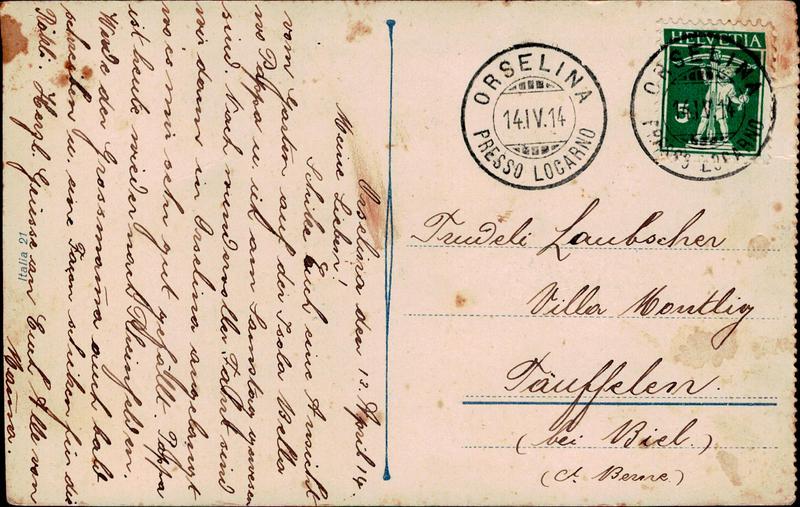 Orselina den 13. April 14.
Meine Lieben!
Schicke Euch eine Ansicht
vom Garten auf der Isola Bella
wo Pappa u. ich am Samstag gewesen
sind. Nach wundervoller Fahrt sind
wir dann in Orselina angelangt
wo es mir sehr gut gefällt. Pappa
ist heute wieder nach Rheinfelden.
Werde der Grossmama auch bald
schreiben u. eine Façon schicken für die
Herzl. Grüsse an Euch Alle von
Mama.
Italia 21
HELVETIA
5
ORSELINA
14.IV.14
PRESSO LOCARNO
ORSELINA
14.IV.14
PRESSO LOCARNO
Trudeli Laubscher
Villa Montlig
Täuffelen.
(bei Biel.)
(Ct. Berne.)